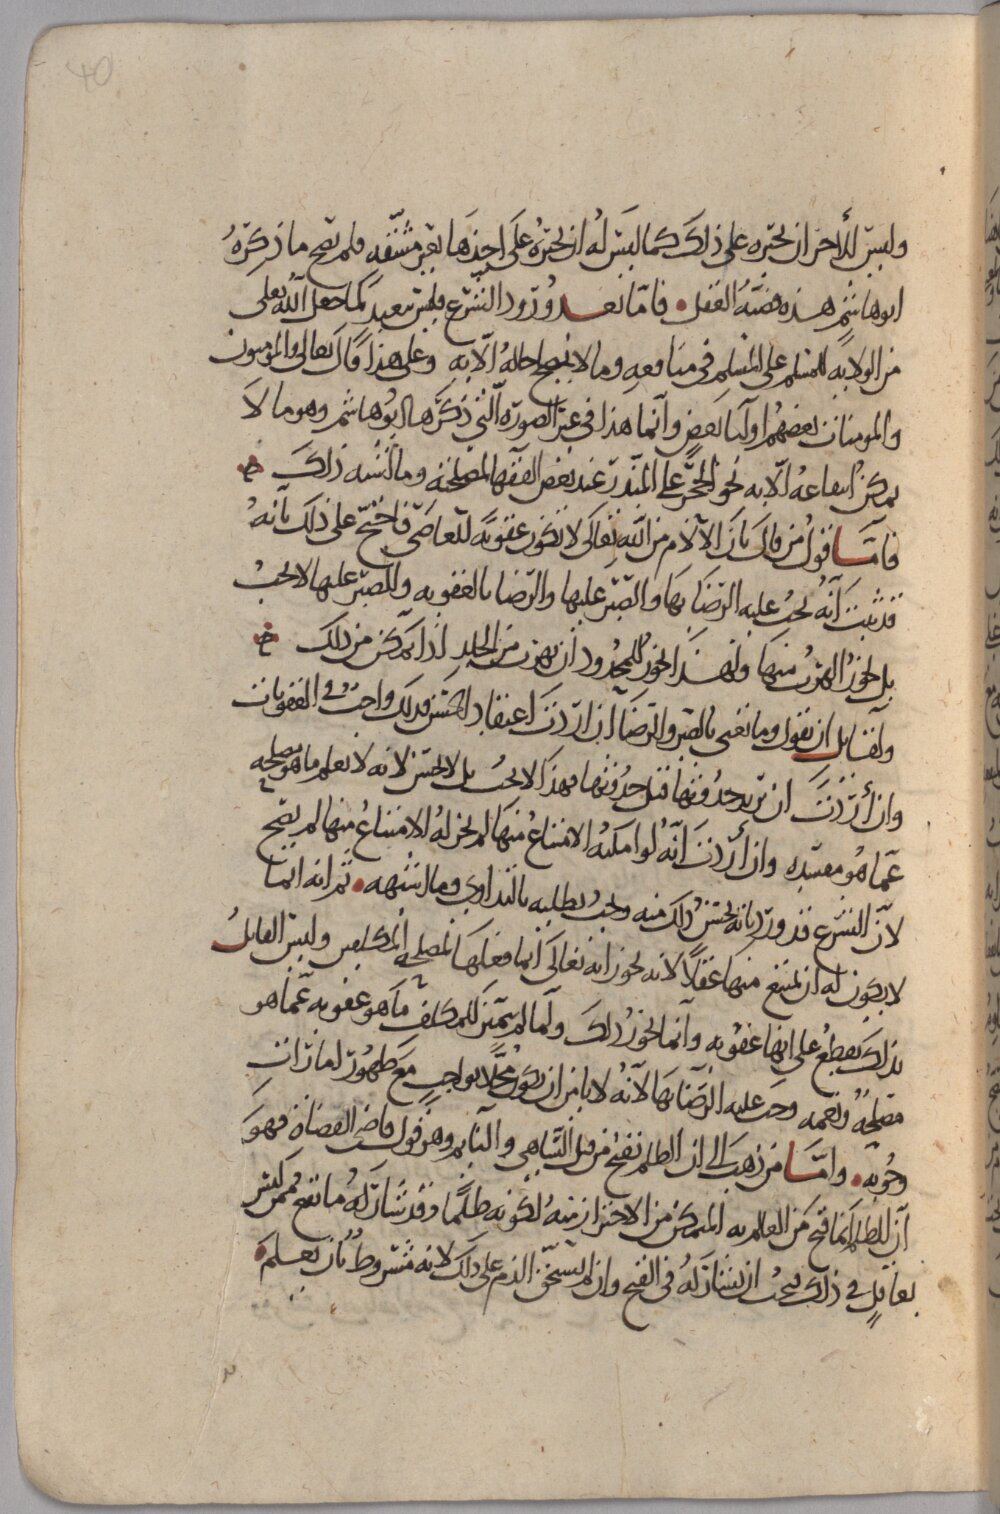 وليس للأخر ان يجبره على ذلك كما ليس له ان يجبره على اخذها بغير مشقه فلم يصح ما ذكره
ابوهاشم هذه قضيه العقل فاما بعد ورود الشرع فليس ببعيد كما جعل الله تعلى
من الولايه للمسلم على المسلم في منافعه وما لا يصلح حاله الا به وعلى هذا قال تعالى والمومنون
والمومنات بعضهم اوليا بعض وانما هذا في غير الصوره التي ذكرها ابوهاشم وهو ما لا
يمكن انتفاعه الا به نحو الحجر على المبذر عند بعض الفقها لمصلحته وما اشبه ذلك
فاما قول من قال بان الالام من الله تعالى لا تكون عقوبة للعاصي فاحتج على ذلك بانه
قد ثبت انه يجب عليه الرضا بها والصبر عليها والرضا بالعقوبه والصبر عليها لا يجب
بل يجوز الهرب منها ولهذا يجوز للمحدود ان يهرب من الجلد اذا تمكن من ذلك
ولقايل ان يقول وما تعني بالصبر والرضا ان اردت اعتقاد الحسن فذلك واجب في العقوبات
وان أردت ان تريد حدوثها قبل حدوثها فهذا لا يجب بل لا يحسن لانه لا يعلم ما هو مصلحه
مما هو مفسده وان أردت انه لو امكنه الامتناع منها لم يجز له الامتناع منها لم يصح
لان الشرع قد ورد بانه يحسن ذلك منه ويجب بطلبه بالتداوي وما اشبهه ثم انه انما
لا يكون له ان يمتنع منها عقلا لانه يجوز انه تعالى انما فعلها لمصلحه المكلفين وليس القايل
بذلك يقطع على انها عقوبه وانما يجوز ذلك ولما لم يتميز للمكلف ما هو عقوبه عما هو
مصلحه ونعمه وجب عليه الرضا بها لانه لا يامن ان يكون مخلا بواجب مع ظهور امارات
وجوبه واما من ذهب الى ان الظلم يقبح من قبل الساهي والنايم وهو قول قاضي القضاة فهو
ان الظلم انما قبح من العالم به المتمكن من الاحتراز منه لكونه ظلما وقد شاركه ما تقع ممن ليس
بعاقل في ذلك فيجب ان يشاركه في القبح وان لم يستحق الذم على ذلك لانه مشروط بان يعلم